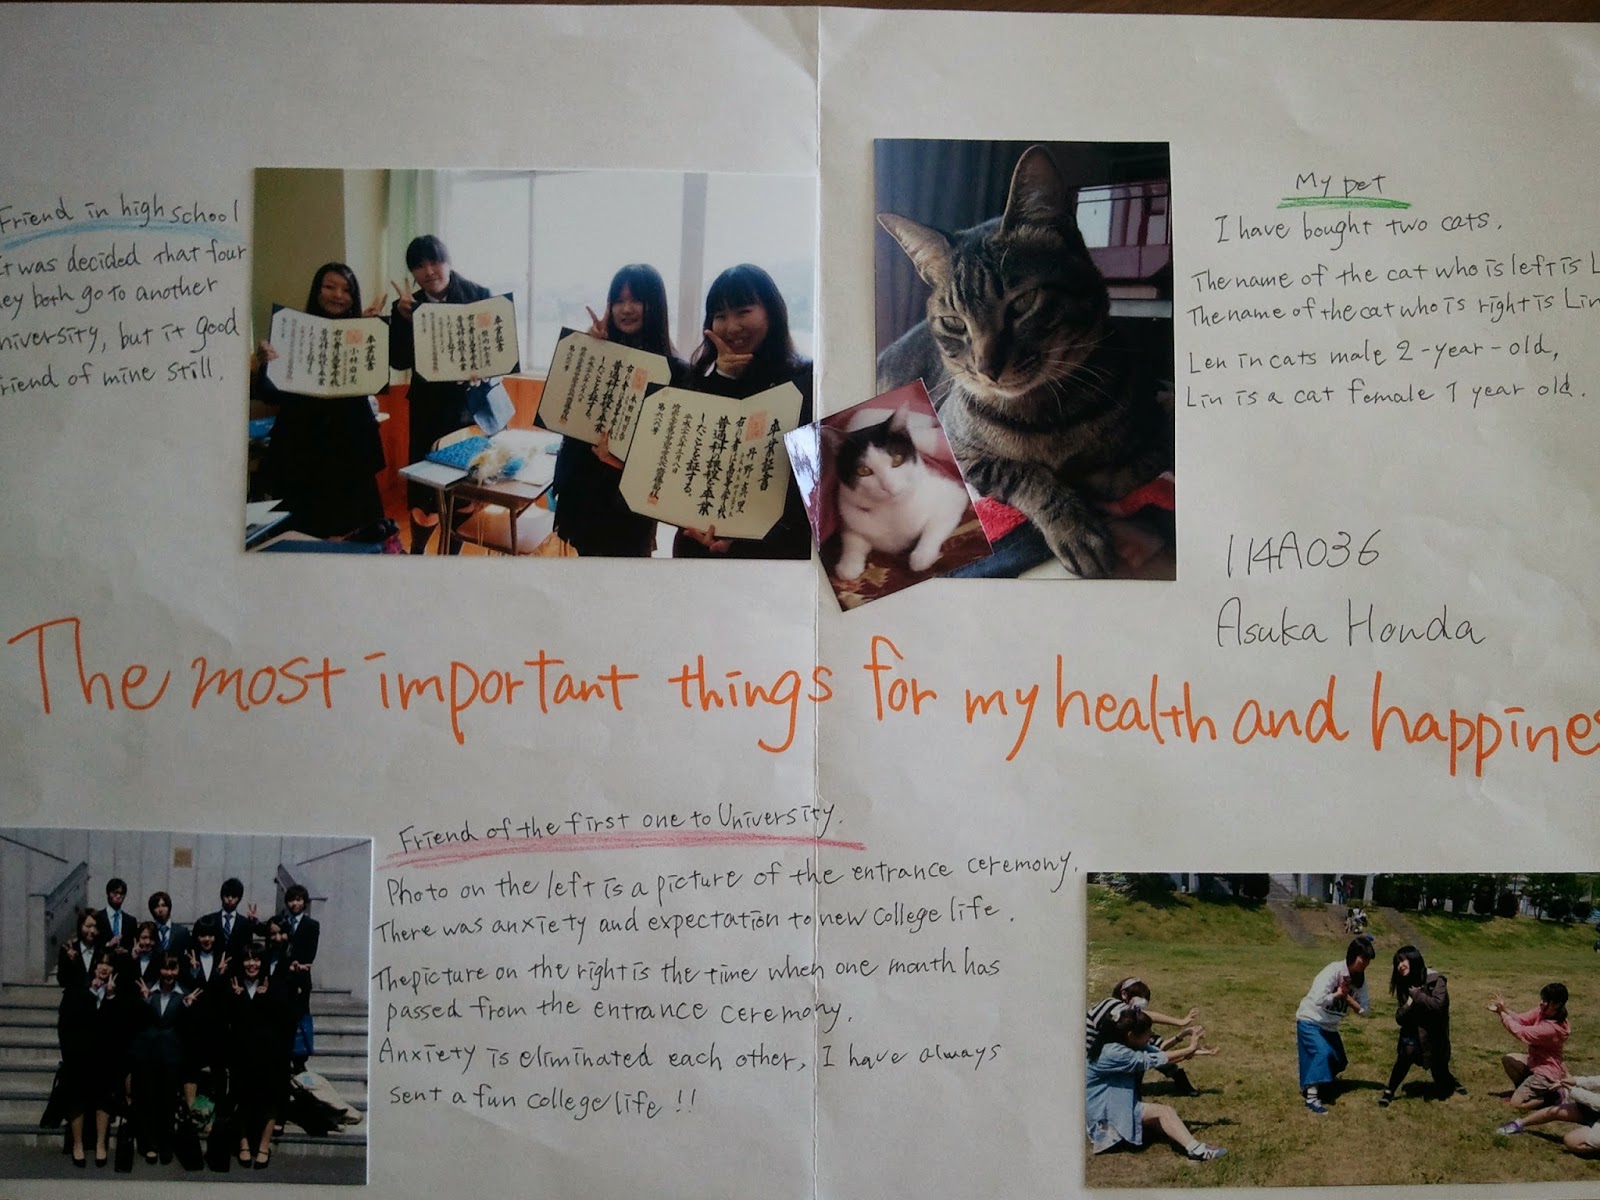 Friend in high school
It was decided that four
they both go to another
university, but it good
friend of mine still.
卒業証書
卒業証書
卒業証書
普通科の課程を卒業
したことを証する
My pet
I have bought two cats.
The name of the cat who is left is L
The name of the cat who is right is Lin
Len in cats male 2-year-old,
Lin is a cat female 1 year old.
114A036
Asuka Honda
The most important things for my health and happines
Friend of the first one to University.
Photo on the left is a picture of the entrance ceremony.
There was anxiety and expectation to new college life.
The picture on the right is the time when one month has
passed from the entrance ceremony.
Anxiety is eliminated each other, I have always
sent a fun college life!!